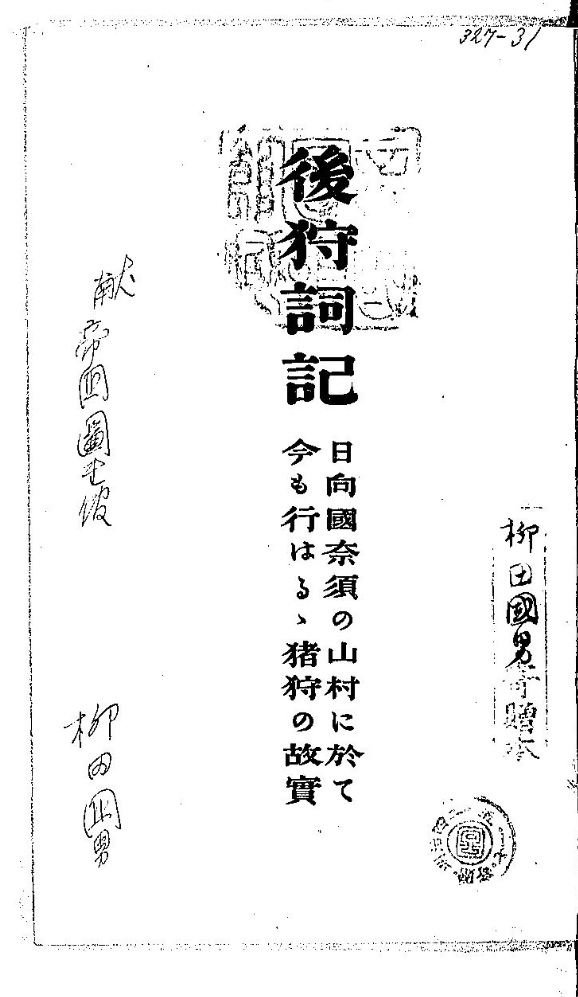 327-31
後狩詞記
日向國奈須の山村に於て
今も行はるゝ猪狩の故實
柳田國男寄贈本
献
帝国圖書館
柳田國男